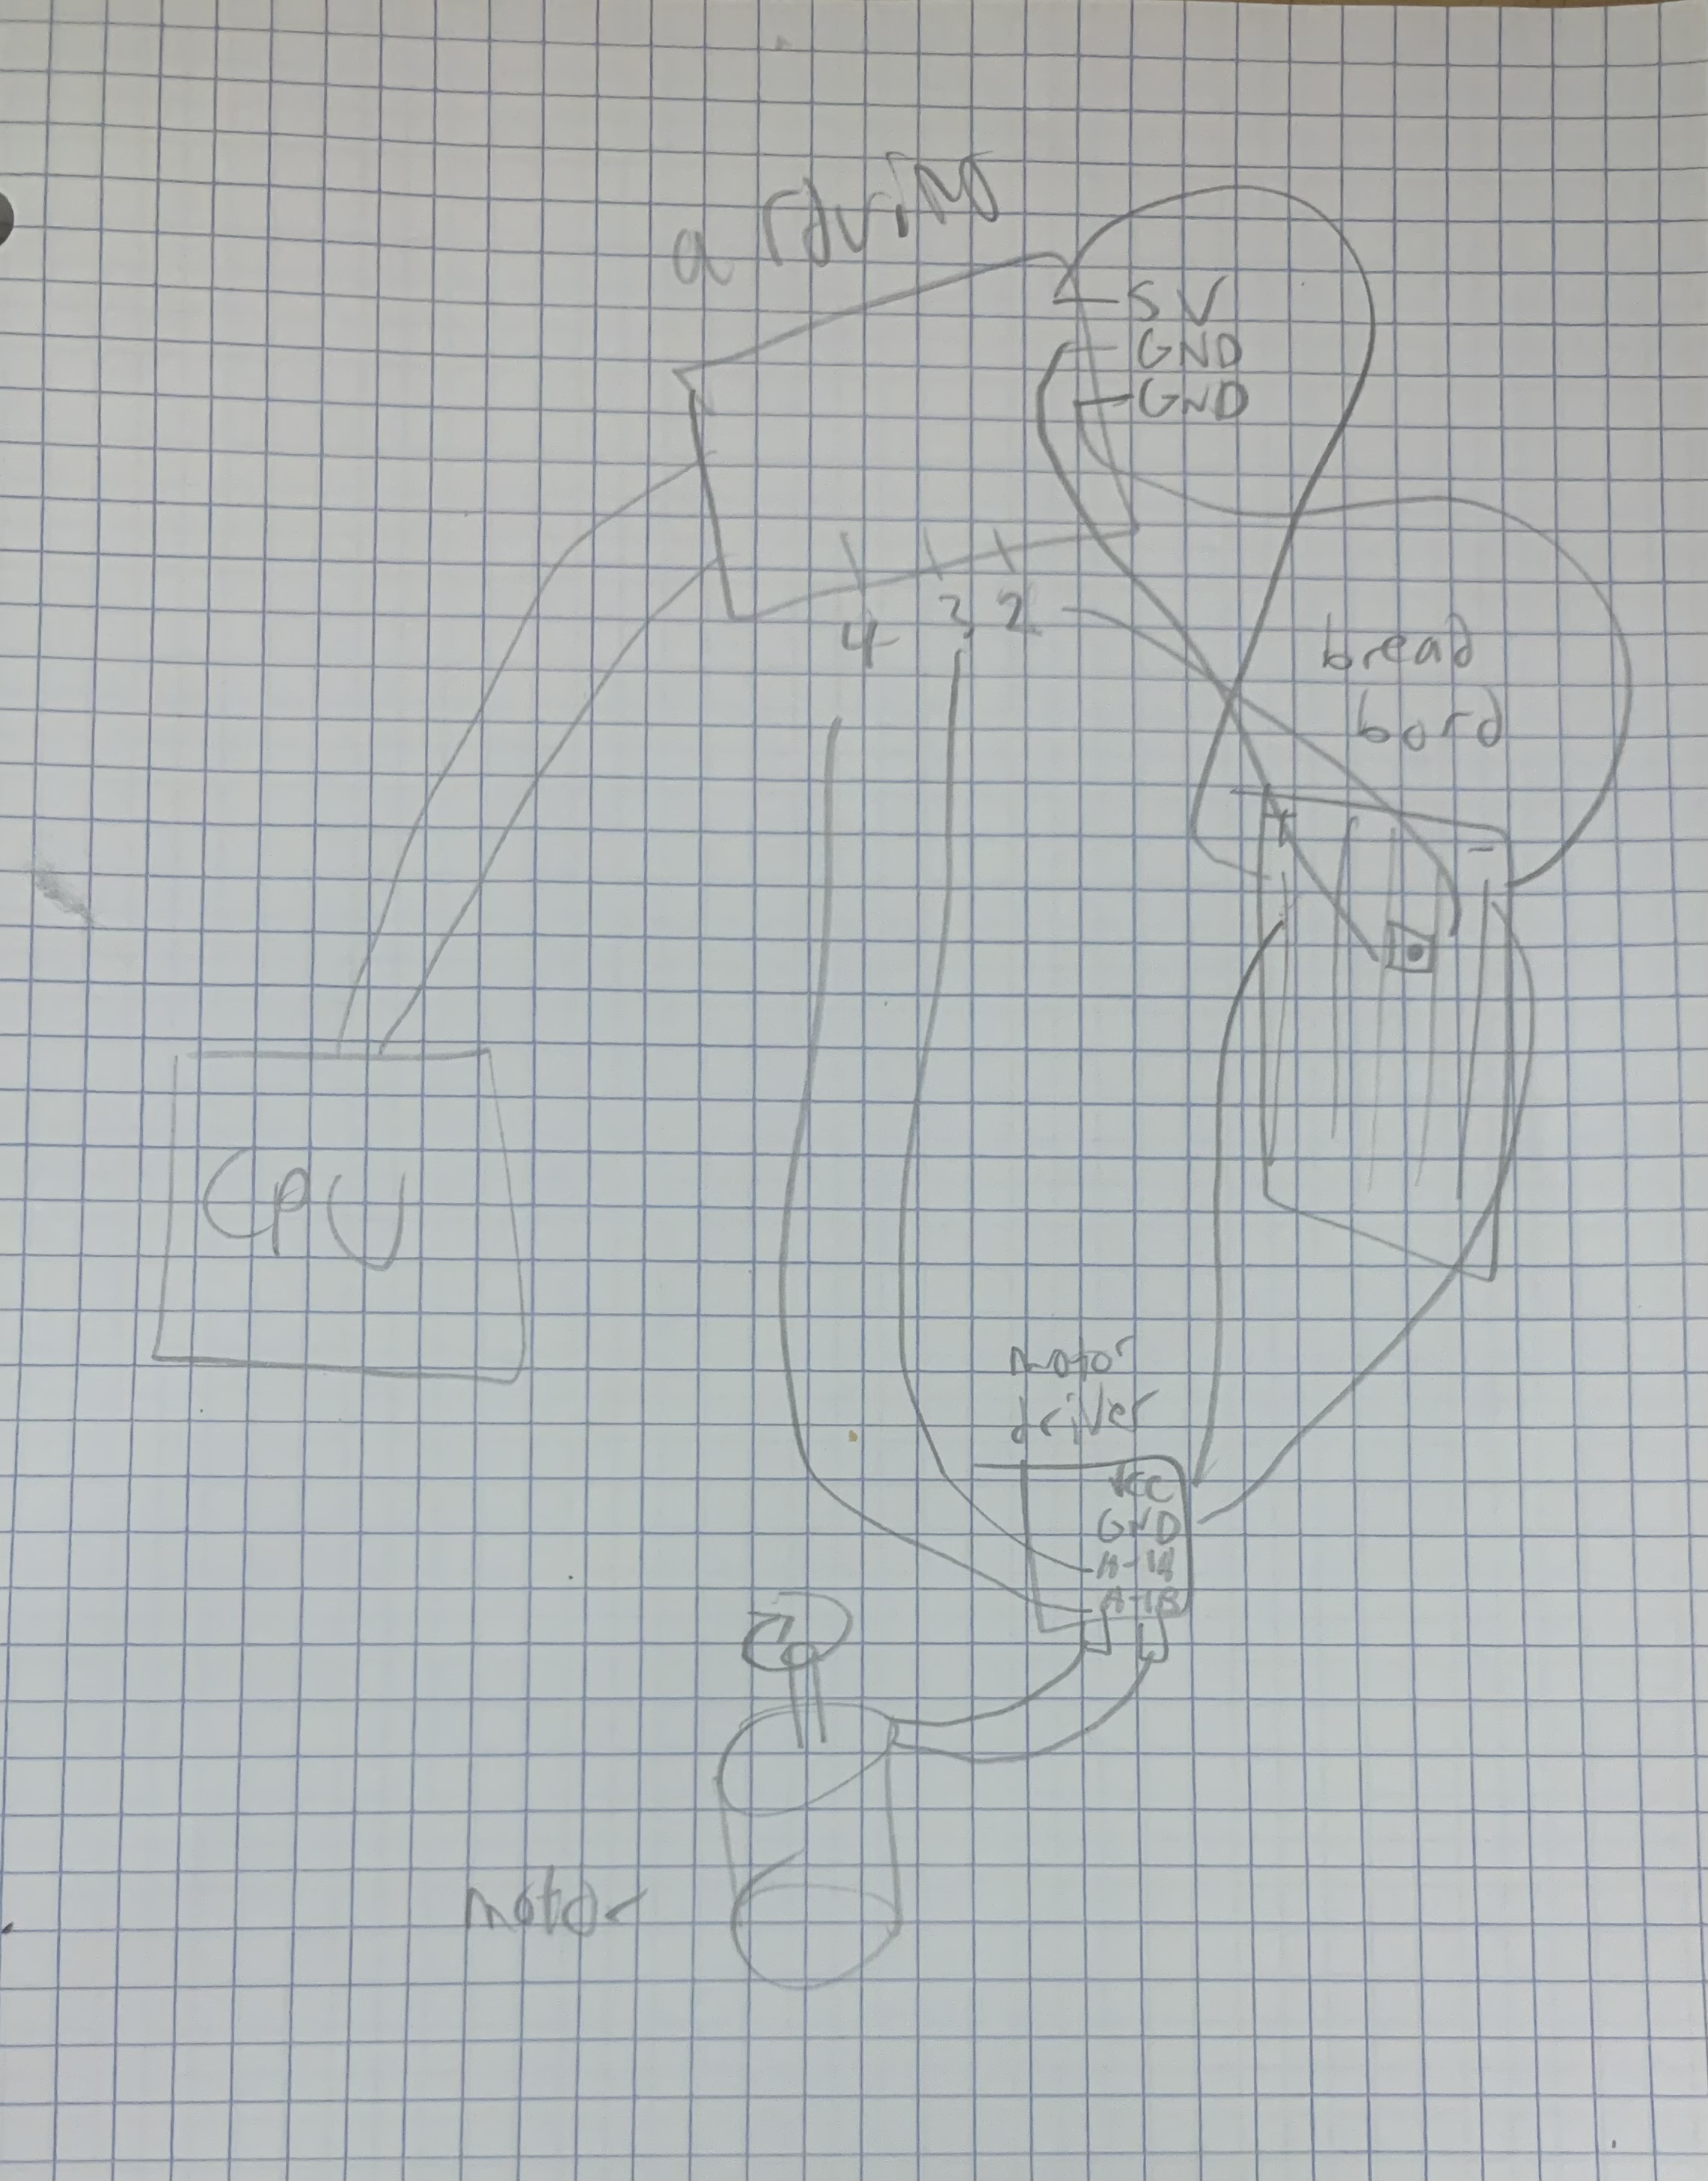 arduino
5V
GND
GND
4 3 2
bread
bord
+ -
CPU
motor
driver
VCC
GND
A-1A
A-1B
motor